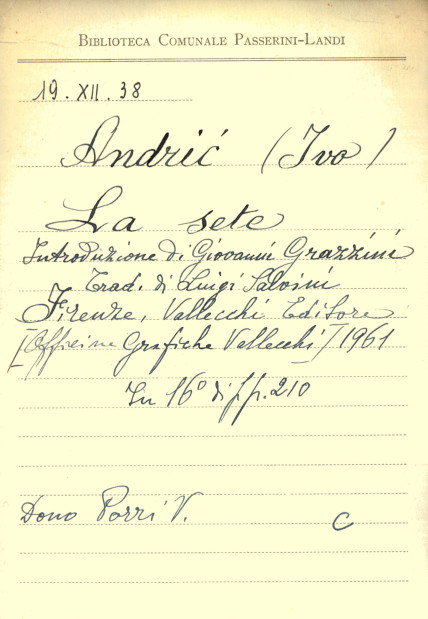 BIBLIOTECA COMUNALE PASSERINI-LANDI
19. XII. 38
Andrić (Ivo)
La sete
Introduzione di Giovanni Grazzini
Trad. di Luigi Salvini
Firenze, Vallecchi Editore
[Officine Grafiche Vallecchi] 1961
In 16° di pp. 210
Dono Porri V.
C